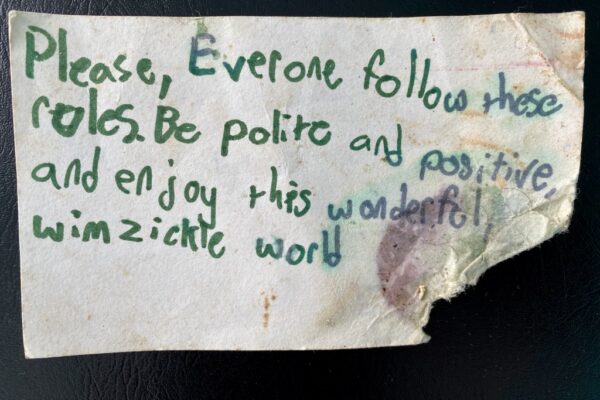 Please, Everone follow these
roles. Be polite and positive,
and enjoy this wonderful,
wimzickle world